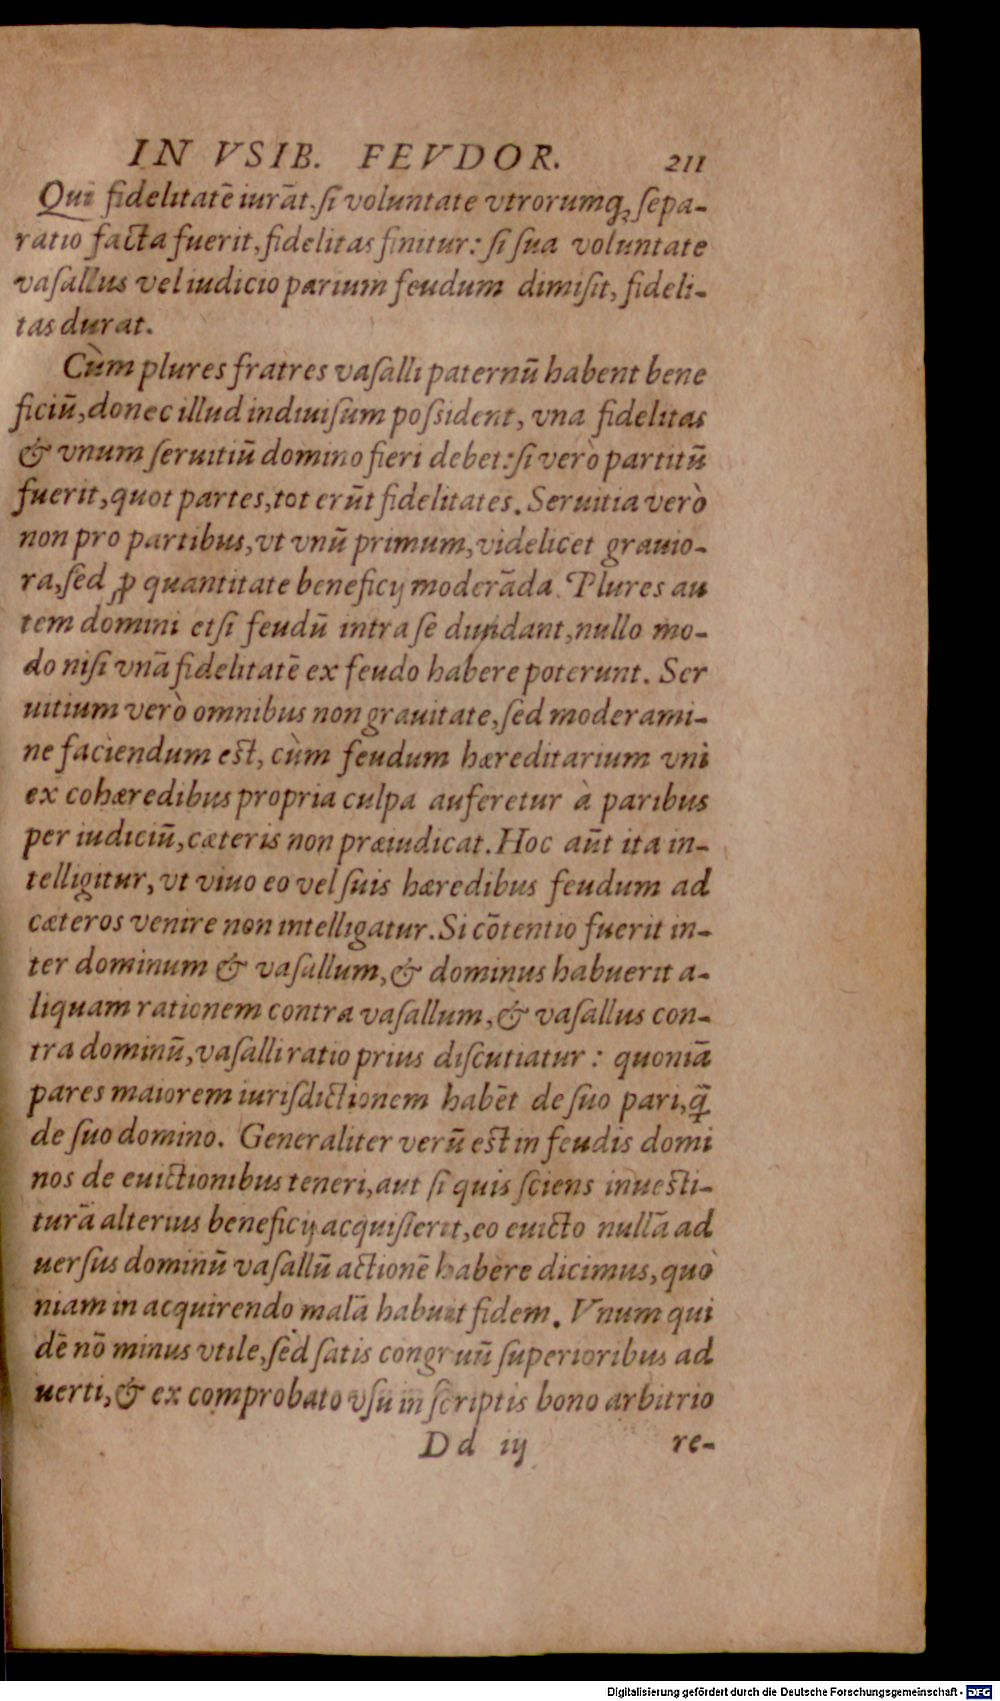 IN VSIB. FEVDOR. 211
Qui fidelitatē iurāt, ſi voluntate vtrorumq; ſepa-
ratio facta fuerit, fidelitas finitur: ſi ſua voluntate
vaſallus vel iudicio parium feudum dimiſit, fideli-
tas durat.
Cùm plures fratres vaſalli paternū habent bene
ficiū, donec illud indiuiſum poſsident, vna fidelitas
& vnum ſeruitiū domino fieri debet: ſi verò partitū
fuerit, quot partes, tot erūt fidelitates. Seruitia verò
non pro partibus, vt vnū primum, videlicet grauio-
ra, ſed ꝓ quantitate beneficij moderāda. Plures au
tem domini etſi feudū intra ſe diuidant, nullo mo-
do niſi vnā fidelitatē ex feudo habere poterunt. Ser
uitium verò omnibus non grauitate, ſed moderami-
ne faciendum eſt, cùm feudum hæreditarium vni
ex cohæredibus propria culpa auferetur à paribus
per iudiciū, cæteris non præiudicat. Hoc aūt ita in-
telligitur, vt viuo eo vel ſuis hæredibus feudum ad
cæteros venire non intelligatur. Si cōtentio fuerit in-
ter dominum & vaſallum, & dominus habuerit a-
liquam rationem contra vaſallum, & vaſallus con-
tra dominū, vaſalli ratio prius diſcutiatur: quoniā
pares maiorem iuriſdictionem habēt de ſuo pari, q̄
de ſuo domino. Generaliter verū eſt in feudis domi
nos de euictionibus teneri, aut ſi quis ſciens inueſti-
turā alterius beneficij acquiſierit, eo euicto nullā ad
uerſus dominū vaſallū actionē habere dicimus, quò
niam in acquirendo malā habuit fidem. Vnum qui
dē nō minus vtile, ſed ſatis congruū ſuperioribus ad
uerti, & ex comprobato vſu in ſcriptis bono arbitrio
Dd iij re-
Digitalisierung gefördert durch die Deutsche Forschungsgemeinschaft - DFG